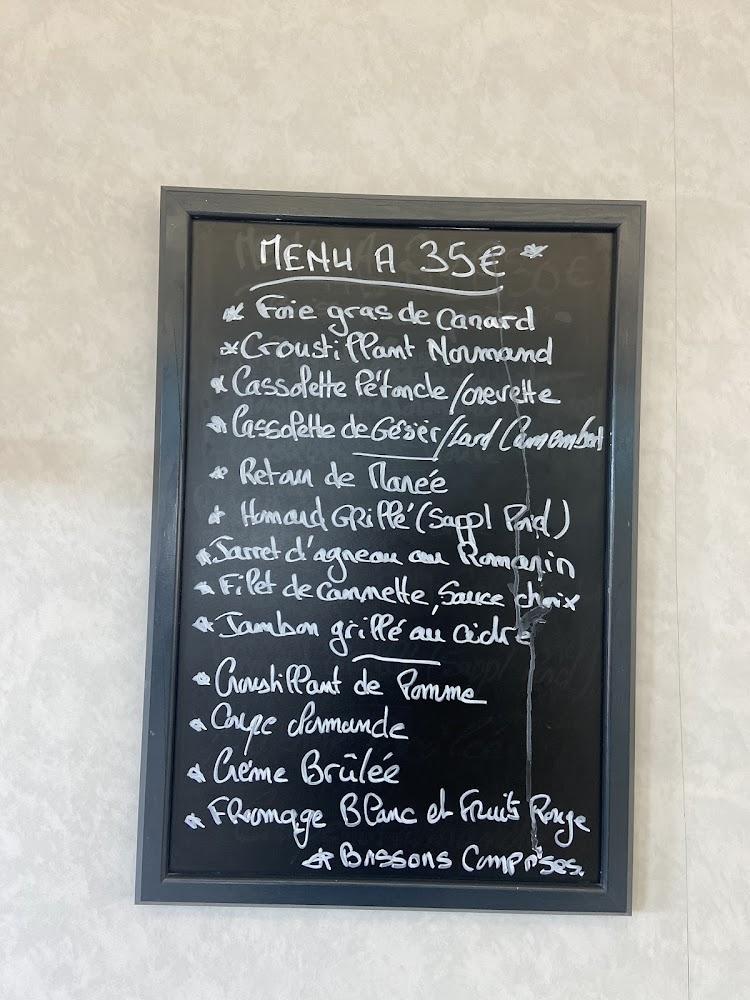 MENU A 35€ *
* Foie gras de Canard
* Croustillant Normand
* Cassolette Pétoncle/crevette
* Cassolette de Gésier/Lard Camembert
* Retour de Marée
* Homard GRillé (Suppl Poid)
* Jarret d'agneau au Romarin
* Filet de cannette, Sauce choix
* Jambon grillé au cidre
* Croustillant de Pomme
* Coupe Normande
* Crème Brûlée
* FRomage Blanc et Fruits Rouge
* Boissons Comprises.